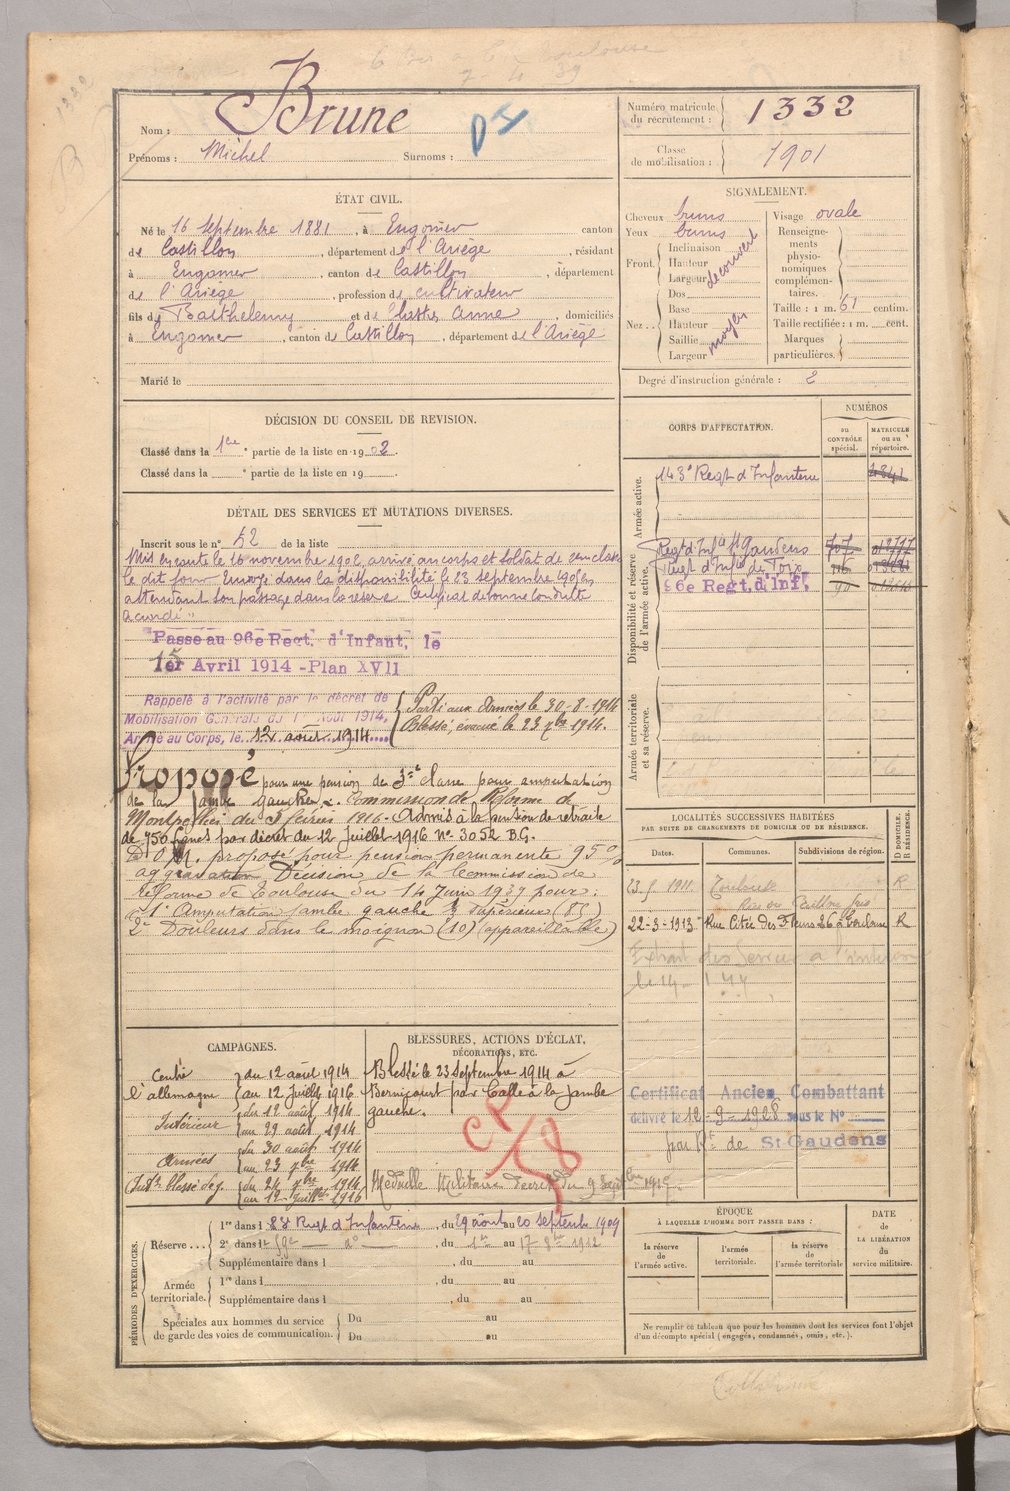 1332
Toulouse
7-4 39
Nom : Brune
PI
Prénoms : Michel Surnoms :
Numéro matricule du recrutement : 1332
Classe de mobilisation : 1901
ÉTAT CIVIL.
Né le 16 septembre 1881, à Engomer canton
de Castillon, département de l'Ariège, résidant
à Engomer, canton de Castillon, département
de l'Ariège, profession de cultivateur
fils de Barthélemy et de Anne, domiciliés
à Engomer, canton de Castillon, département de l'Ariège
Marié le
SIGNALEMENT.
Cheveux bruns
Yeux bruns
Front. Inclinaison
Hauteur
Largeur
découvert
Nez.. Dos
Base
Hauteur
Saillie
Largeur
moyen
Visage ovale
Renseignements physionomiques complémentaires.
Taille : 1 m. 61 centim.
Taille rectifiée : 1 m. cent.
Marques particulières.
Degré d'instruction générale : 2
DÉCISION DU CONSEIL DE REVISION.
Classé dans la 1re partie de la liste en 1902.
Classé dans la e partie de la liste en 19
DÉTAIL DES SERVICES ET MUTATIONS DIVERSES.
Inscrit sous le n° 52 de la liste
Mis en route le 16 novembre 1902, arrivé au corps et soldat de 2eme classe
le dit jour. Envoyé dans la disponibilité le 23 septembre 1905 en
attendant son passage dans la réserve. Certificat de bonne conduite
accordé "
Passé au 96e Regt. d'Infant. le
1er Avril 1914 - Plan XVII
15
Rappelé à l'activité par le décret de
Mobilisation Générale du 1er Août 1914,
Arrivé au Corps, le 12 août 1914
Parti aux Armées le 30-8-1914
Blessé, évacué le 23 7bre 1914.
Proposé pour une pension de 3me classe pour amputation
de la jambe gauche. Commission de Réforme de
Montpellier du 3 février 1916. Admis à la pension de retraite
de 750 francs par décret du 12 Juillet 1916 N° 3052 B.G.
proposé pour pension permanente 95 %
aggravation Décision de la Commission de
réforme de Toulouse du 14 Juin 1937 pour :
1° Amputation jambe gauche supérieur (85)
2° Douleurs dans le moignon (10) (appareillable)
CORPS D'AFFECTATION.
NUMÉROS
au CONTRÔLE spécial.
MATRICULE ou au répertoire.
Armée active.
143e Regt d'Infanterie
Disponibilité et réserve de l'armée active.
Regt d'Infie St Gaudens
Regt d'Infie de Foix
96e Regt. d'Inf.
Armée territoriale et sa réserve.
LOCALITÉS SUCCESSIVES HABITÉES
PAR SUITE DE CHANGEMENTS DE DOMICILE OU DE RÉSIDENCE.
Dates. Communes. Subdivisions de région. D DOMICILE. R RÉSIDENCE.
1911. Toulouse R
22-3-1913 Rue Citée des Fleurs 26 à Toulouse R
Certificat Ancien Combattant
délivré le 12-9-1928 sous le N°
par Rt de St-Gaudens
CAMPAGNES.
Contre l'allemagne du 12 août 1914
au 12 Juillet 1916
Intérieur du 12 août 1914
au 29 août 1914
Armées du 30 août 1914
au 23 7bre 1914
Intr blessé de g. du 24 7bre 1914
au 12 Juillet 1916
BLESSURES, ACTIONS D'ÉCLAT, DÉCORATIONS, ETC.
Blessé le 23 septembre 1914 à
Bernicourt par balle à la jambe
gauche.
CP/58
Médaille Militaire
PÉRIODES D'EXERCICES.
Réserve... 1re dans l 88e Regt d'Infanterie, du 29 août au 20 septembre 1909
2e dans l 59e, du 1er au 17 8bre 1912
Supplémentaire dans l , du au
Armée territoriale. 1re dans l , du au
Supplémentaire dans l , du au
Spéciales aux hommes du service de garde des voies de communication. Du au
Du au
ÉPOQUE
À LAQUELLE L'HOMME DOIT PASSER DANS :
la réserve de l'armée active.
l'armée territoriale.
la réserve de l'armée territoriale
DATE de LA LIBÉRATION du service militaire.
Ne remplir ce tableau que pour les hommes dont les services font l'objet
d'un décompte spécial (engagés, condamnés, omis, etc.).